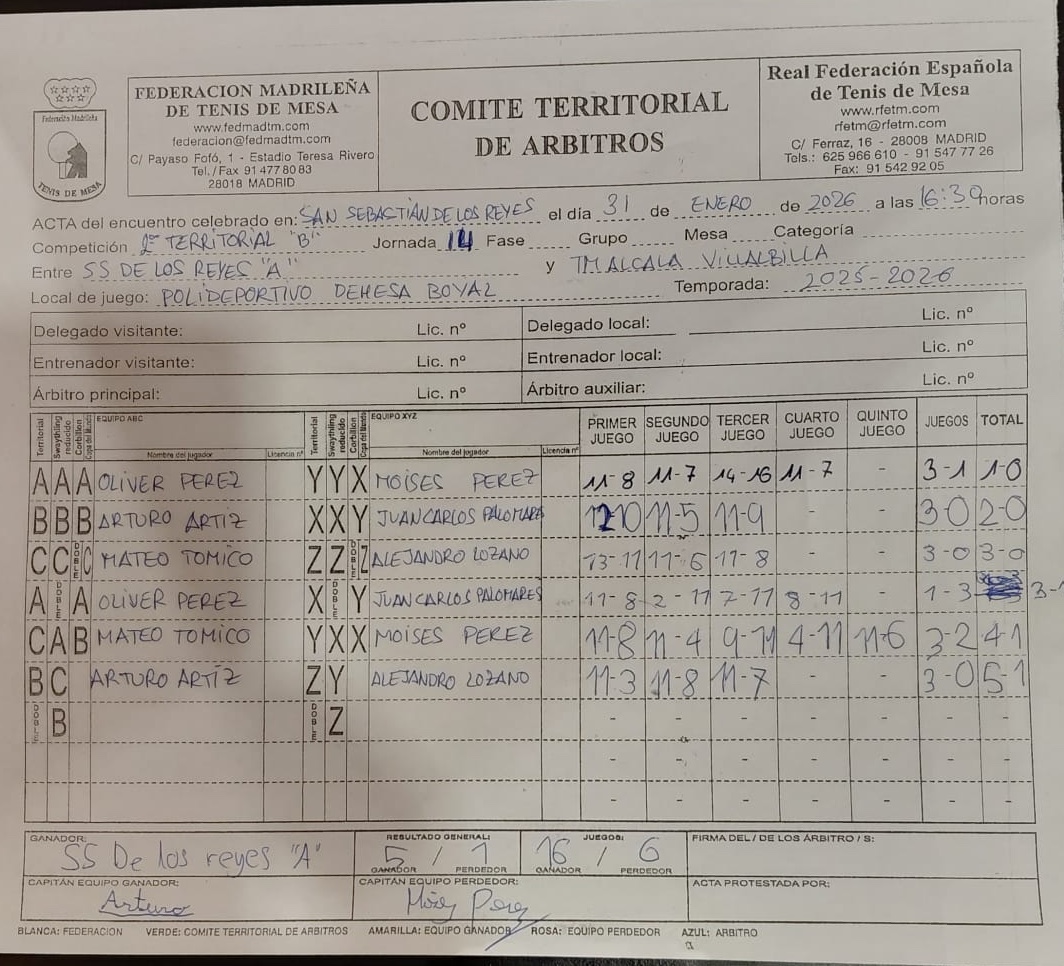 Federación Madrileña
TENIS DE MESA
FEDERACION MADRILEÑA
DE TENIS DE MESA
www.fedmadtm.com
federacion@fedmadtm.com
C/ Payaso Fofó, 1 - Estadio Teresa Rivero
Tel./Fax 91 477 80 83
28018 MADRID
COMITE TERRITORIAL
DE ARBITROS
Real Federación Española
de Tenis de Mesa
www.rfetm.com
rfetm@rfetm.com
C/ Ferraz, 16 - 28008 MADRID
Tels.: 625 966 610 - 91 547 77 26
Fax: 91 542 92 05
ACTA del encuentro celebrado en: SAN SEBASTIÁN DE LOS REYES el día 31 de ENERO de 2026 a las 16:30 horas
Competición 2ª TERRITORIAL "B" Jornada 14 Fase Grupo Mesa Categoría
Entre SS DE LOS REYES "A" y TM ALCALA VILLALBILLA
Local de juego: POLIDEPORTIVO DEHESA BOYAL Temporada: 2025-2026
Delegado visitante: Lic. nº Delegado local: Lic. nº
Entrenador visitante: Lic. nº Entrenador local: Lic. nº
Árbitro principal: Lic. nº Árbitro auxiliar: Lic. nº
Territorial Swaythling reducido Corbillon Copa del Mundo EQUIPO ABC Nombre del jugador Licencia nº Territorial Swaythling reducido Corbillon Copa del Mundo EQUIPO XYZ Nombre del jugador Licencia nº PRIMER JUEGO SEGUNDO JUEGO TERCER JUEGO CUARTO JUEGO QUINTO JUEGO JUEGOS TOTAL
A A A OLIVER PEREZ Y Y X MOISES PEREZ 11-8 11-7 14-16 11-7 - 3-1 1-0
B B B ARTURO ARTIZ X X Y JUAN CARLOS PALOMARES 12-10 11-5 11-9 - - 3-0 2-0
C C DOBLE C MATEO TOMICO Z Z DOBLE Z ALEJANDRO LOZANO 13-11 11-6 11-8 - - 3-0 3-0
A DOBLE A OLIVER PEREZ X DOBLE Y JUAN CARLOS PALOMARES 11-8 2-11 7-11 8-11 - 1-3 3-1
C A B MATEO TOMICO Y X X MOISES PEREZ 11-8 11-4 9-11 4-11 11-6 3-2 4-1
B C ARTURO ARTÍZ Z Y ALEJANDRO LOZANO 11-3 11-8 11-7 - - 3-0 5-1
DOBLE B DOBLE Z - - - - - - -
- - - - - - -
- - - - - - -
GANADOR: SS De los reyes "A" RESULTADO GENERAL: 5 / 1 GANADOR PERDEDOR JUEGOS: 16 / 6 GANADOR PERDEDOR FIRMA DEL / DE LOS ÁRBITRO / S:
CAPITÁN EQUIPO GANADOR: Arturo CAPITÁN EQUIPO PERDEDOR: Moises Perez ACTA PROTESTADA POR:
BLANCA: FEDERACION VERDE: COMITE TERRITORIAL DE ARBITROS AMARILLA: EQUIPO GANADOR ROSA: EQUIPO PERDEDOR AZUL: ARBITRO